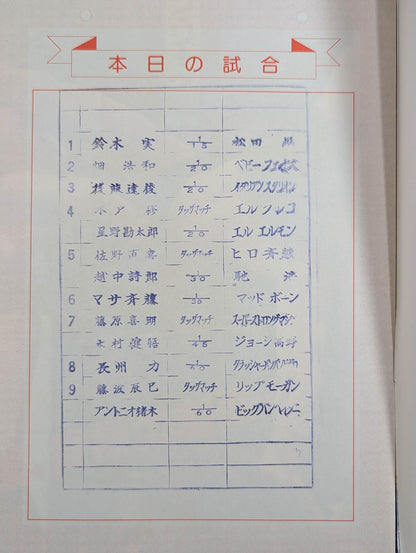 本日の試合
1 鈴木 実 1/15 松田
2 畑 浩和 1/20 ベビーフェイス
3 後藤達俊 1/20 イタリアンスタリオン
4 木戸 修 タッグマッチ エル
星野勘太郎 1/20 エルエルモン
5 佐野直喜 タッグマッチ ヒロ斉藤
越中詩郎 1/30 馳 浩
6 マサ斉藤 1/30 マッドボーン
7 藤原喜明 タッグマッチ スーパーストロングマシン
木村健悟 1/45 ジョージ高野
8 長州 力 1/60 クラッシャーバンバン
9 藤波辰巳 タッグマッチ リップモーガン
アントニオ猪木 1/60 ビッグバン